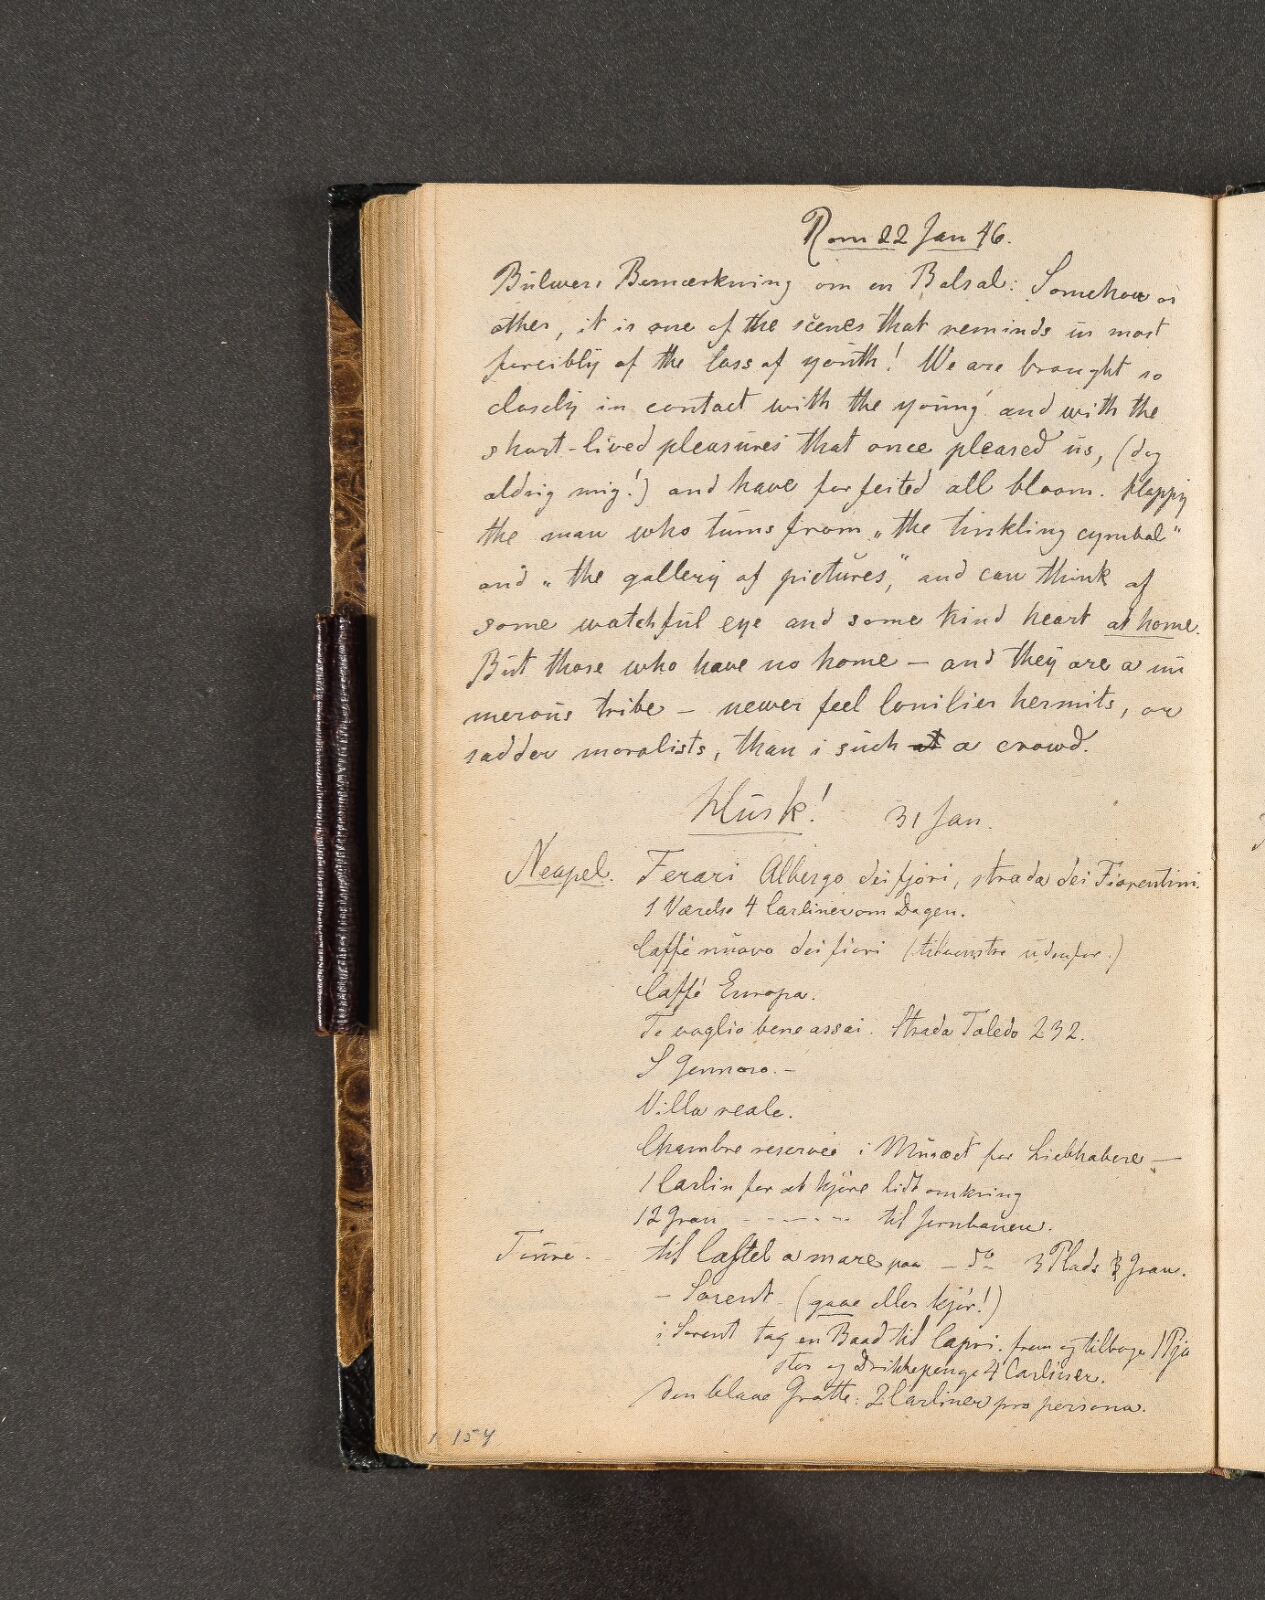 Rom 22 Jan 46.
Bulwers Bemærkning om en Balsal: Somehow or
other, it is one of the scenes that reminds us most
forcibly of the loss of youth! We are brought so
closely in contact with the young and with the
short-lived pleasures that once pleased us, (dog
aldrig mig!) and have forfeited all bloom. Happy
the man who turns from "the tinkling cymbal"
and "the gallery of pictures", and can think of
some watchful eye and some kind heart at home.
But those who have no home – and they are a nu
merous tribe – newer feel lonilier hermits, or
sadder moralists, than i such at a crowd.
Husk! 31 Jan.
Neapel. Ferari Albergo dei fjori, strada dei Fiorentini.
1 Værelse 4 Carliner om Dagen.
Caffé nuovo dei fiori (tilvenstre udenfor.)
Caffé Europa.
Te voglio bene assai. Strada Toledo 232.
S Gennaro. –
Villa reale.
Chambre reservée i Musæet for Liebhabere –
1 Carlin for at kjöre lidt omkring
12 Gran - - - - - til Jernbanen.
Toure. til Castel a mare paa – do 3 Plads Gran.
– Sorent (gaae eller kjör!)
i Sorent tag en Baad til Capri. frem og tilbage 1 Pja
ster og Drikkepenge 4 Carliner.
Den blaae Grotte: 2 Carliner pro persona.
154